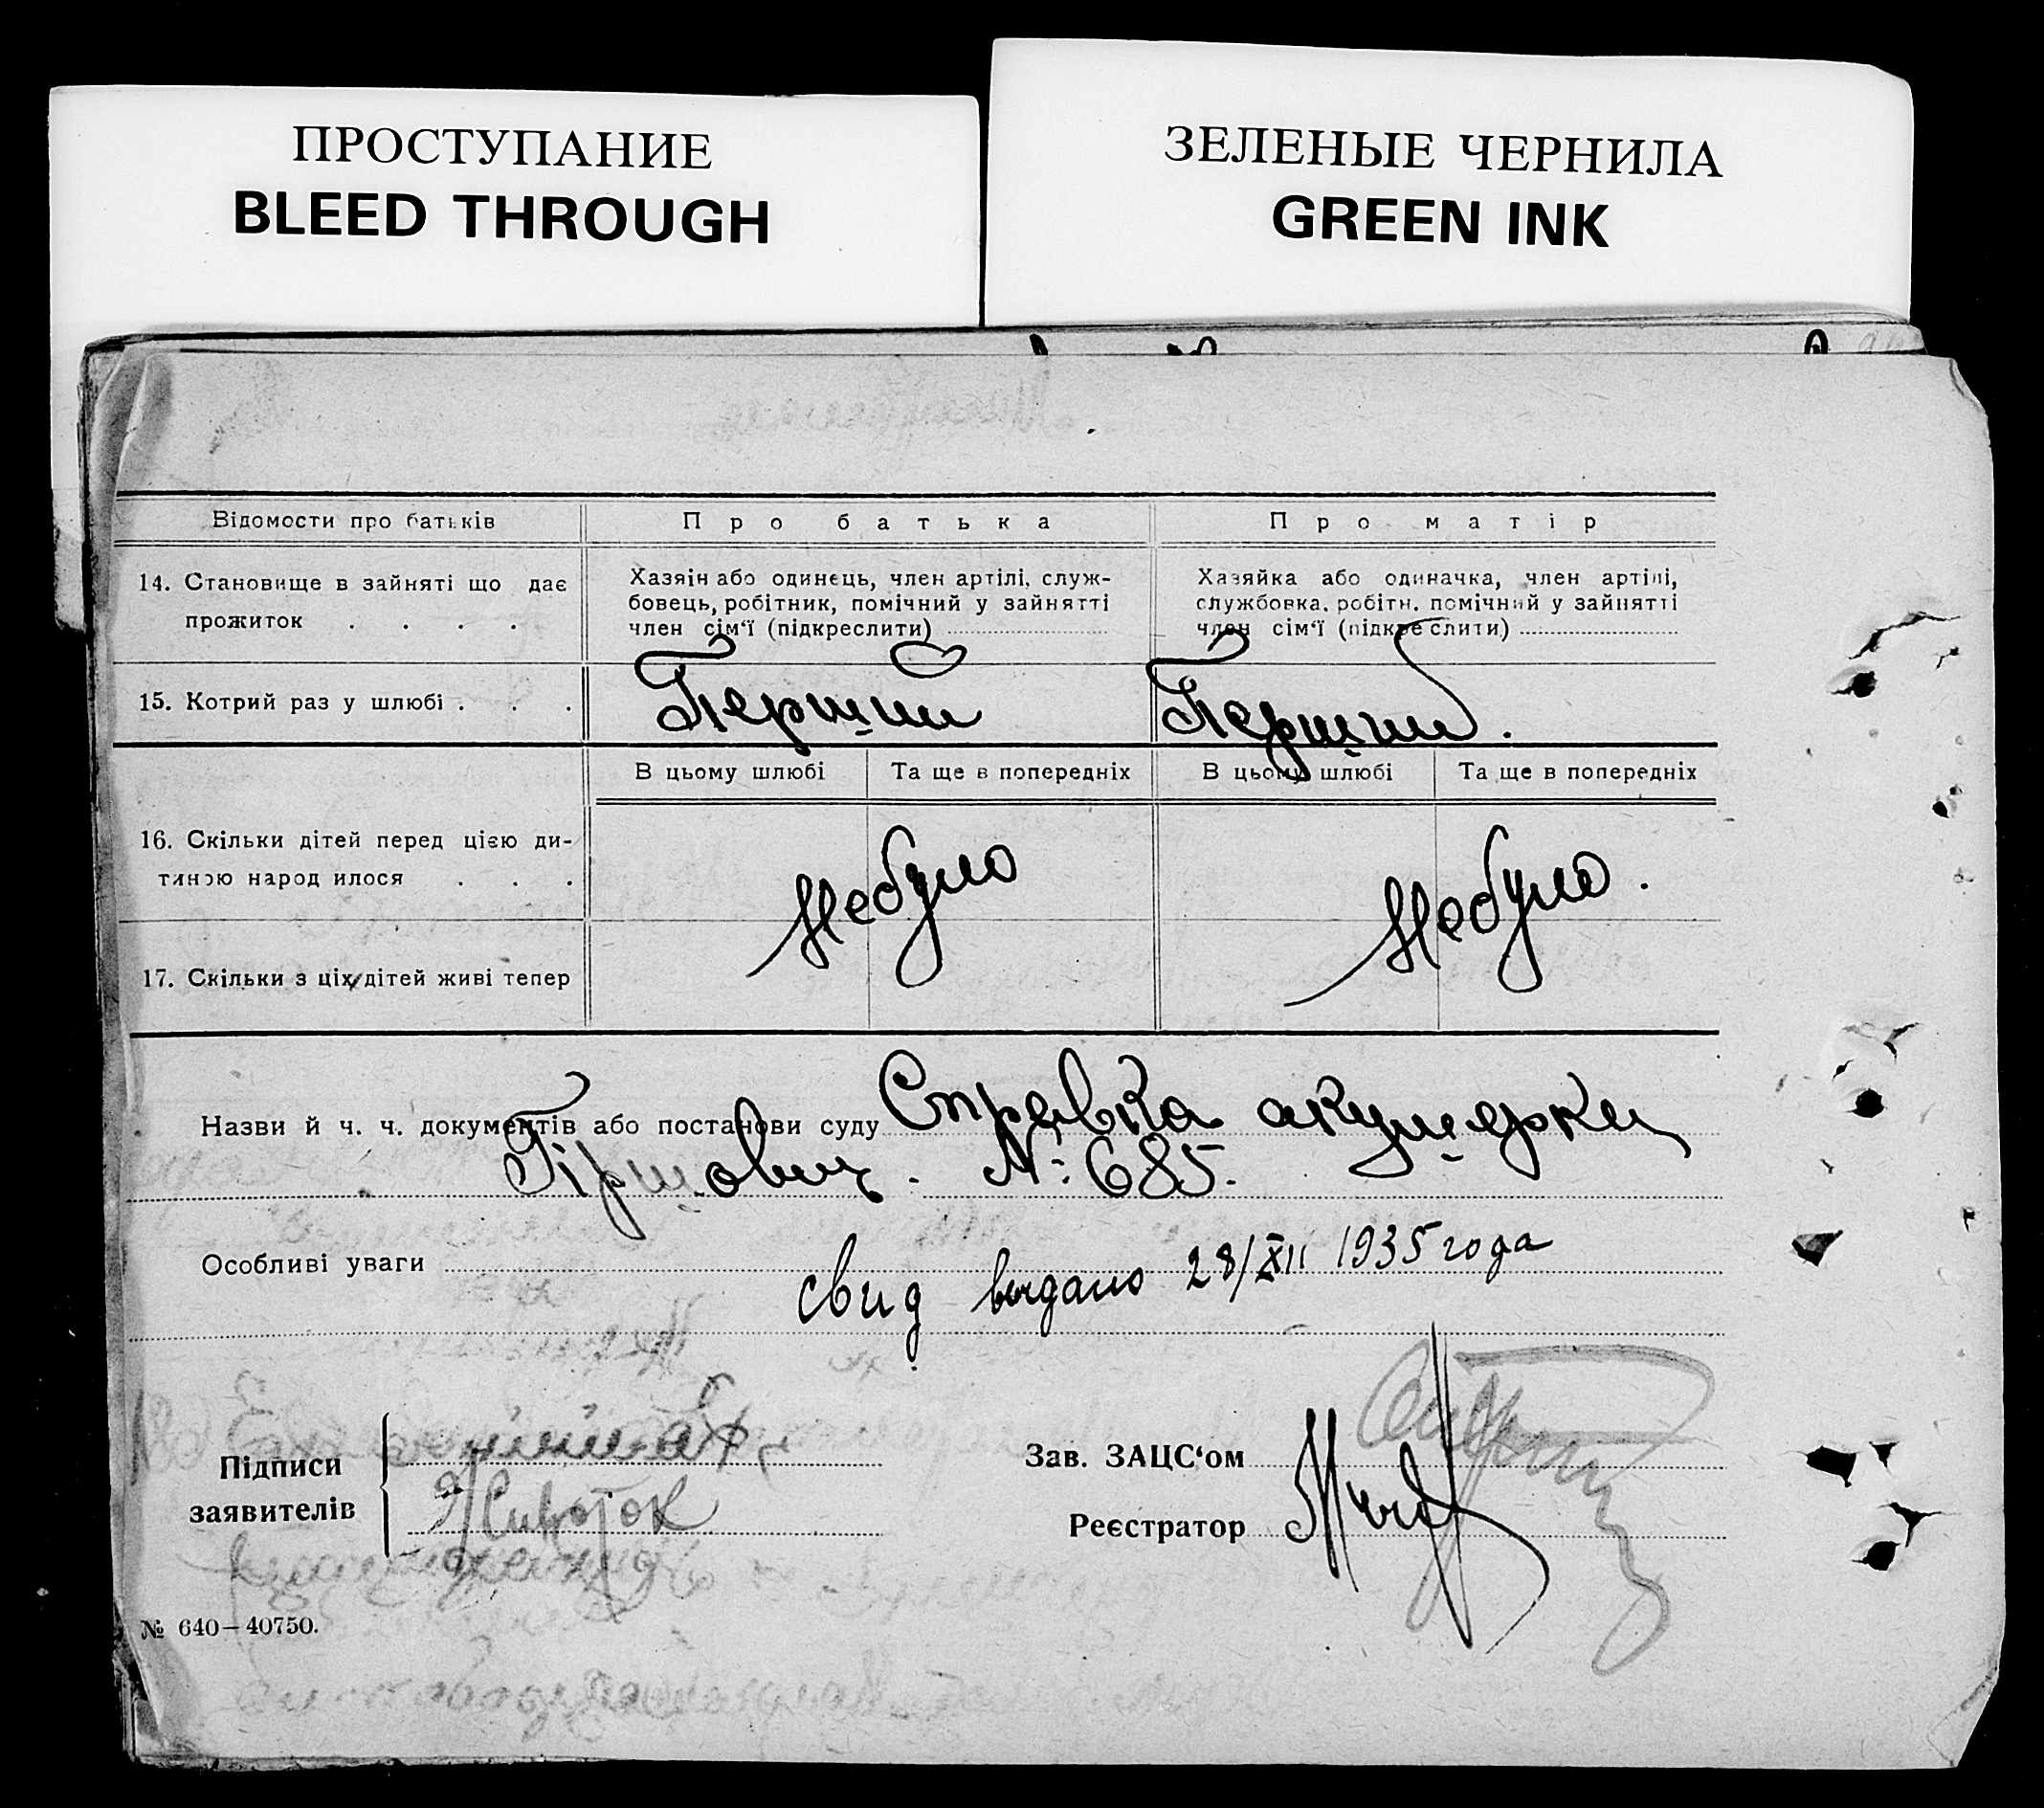 ПРОСТУПАНИЕ
BLEED THROUGH
ЗЕЛЕНЫЕ ЧЕРНИЛА
GREEN INK
Відомости про батьків
Про батька
Про матір
14. Становище в зайняті що дає
прожиток . . . .
Хазяін або одинець, член артілі, служ-
бовець, робітник, помічний у зайнятті
член сім‘ї (підкреслити)
Хазяйка або одиначка, член артілі,
службовка, робітн. помічний у зайнятті
член сім‘ї (підкреслити)
15. Котрий раз у шлюбі . . .
Перший
Перший.
В цьому шлюбі
Та ще в попередніх
В цьому шлюбі
Та ще в попередніх
16. Скільки дітей перед цією ди-
тиною народилося . . .
Небуло
Небуло.
17. Скільки з ціх дітей живі тепер
Назви й ч. ч. документів або постанови суду Справка акушерки
Гіршович. №: 685.
Особливі уваги
свид выдано 28/XII 1935 года
Підписи
заявителів
Животок
Зав. ЗАЦС‘ом
Реєстратор
№ 640—40750.